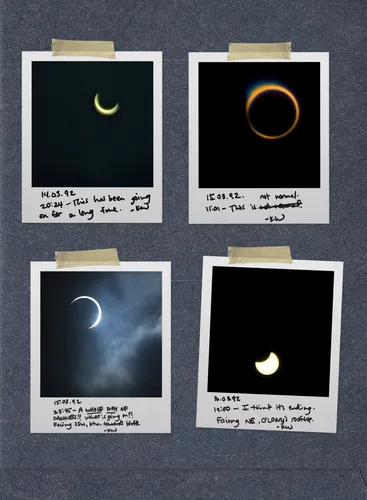 14.03.92
20:24 – This has been going
on for a long time. -KW
15.03.92. not normal.
11:01 – This is
-KW
15.03.92
23:45 – A WHOLE DAY OF
DARKNESS!! What is going on?!
Facing btw. towards
-KW
16.03.92
19:00 – I think it's ending.
Facing NE, rooftop.
-KW